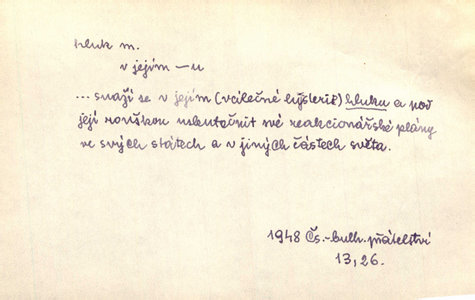 hluk m.
v jejím —u
... snaží se v jejím (válečné hysterie) hluku a pod
její rouškou uskutečnit své reakcionářské plány
ve svých státech a v jiných částech světa.
1948 Čs.-bulh. přátelství
13, 26.